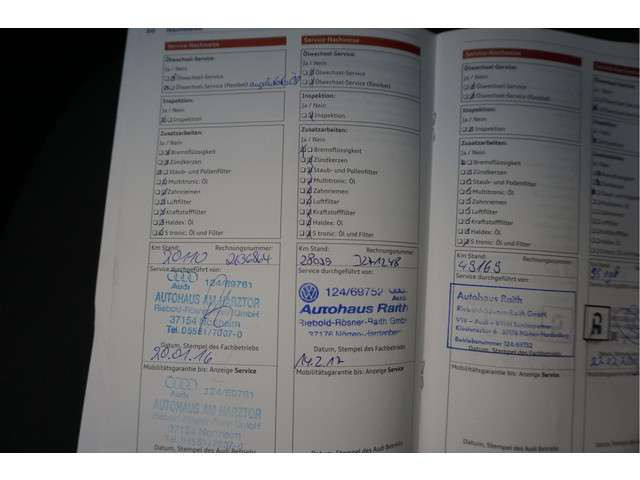 Service-Nachweise
Ölwechsel-Service:
Ja / Nein
Ölwechsel-Service
Ölwechsel-Service (flexibel)
Inspektion:
Ja / Nein
Inspektion
Zusatzarbeiten:
Ja / Nein
Bremsflüssigkeit
Zündkerzen
Staub- und Pollenfilter
Multitronic: Öl
Zahnriemen
Luftfilter
Kraftstofffilter
Haldex: Öl
S tronic: Öl und Filter
Km Stand: Rechnungsnummer:
20110
Service durchgeführt von:
Audi 124/69761
AUTOHAUS AM HARZTOR
Riebold-Rösner GmbH
37154 Northeim
Tel. 05551/7037-0
Datum, Stempel des Fachbetriebs
20.01.16
Mobilitätsgarantie bis: Anzeige Service
Audi 124/69761
AUTOHAUS AM HARZTOR
37154 Northeim
Datum, Stempel des Audi Betriebs
Service-Nachweise
Ölwechsel-Service:
Ja / Nein
Ölwechsel-Service
Ölwechsel-Service (flexibel)
Inspektion:
Ja / Nein
Inspektion
Zusatzarbeiten:
Ja / Nein
Bremsflüssigkeit
Zündkerzen
Staub- und Pollenfilter
Multitronic: Öl
Zahnriemen
Luftfilter
Kraftstofffilter
Haldex: Öl
S tronic: Öl und Filter
Km Stand: Rechnungsnummer:
28039 D271248
Service durchgeführt von:
124/69752 Audi
Autohaus Raith
Riebold-Rösner-Raith GmbH
Datum, Stempel des Fachbetriebs
14.2.17
Mobilitätsgarantie bis: Anzeige Service
Datum, Stempel des Audi Betriebs
Service-Nachweise
Ölwechsel-Service:
Ja / Nein
Ölwechsel-Service
Ölwechsel-Service (flexibel)
Inspektion:
Ja / Nein
Inspektion
Zusatzarbeiten:
Ja / Nein
Bremsflüssigkeit
Zündkerzen
Staub- und Pollenfilter
Multitronic: Öl
Zahnriemen
Luftfilter
Kraftstofffilter
Haldex: Öl
S tronic: Öl und Filter
Km Stand: Rechnungsnummer:
43165
Service durchgeführt von:
Autohaus Raith
Riebold-Rösner-Raith GmbH
Betriebsnummer 124/69752
Datum, Stempel des Fachbetriebs
Mobilitätsgarantie bis: Anzeige Service
Datum, Stempel des Audi Betriebs